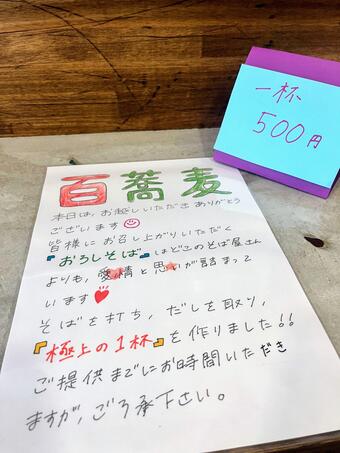 一杯
500円
百蕎麦
本日は、お越しいただきありがとう
ございます
皆様にお召し上がりいただく
『おろしそば』はどこのそば屋さん
よりも、愛情と思いが詰まって
います
そばを打ち、だしを取り、
『極上の1杯』を作りました!!
ご提供までにお時間いただき
ますが、ごろ承下さい。